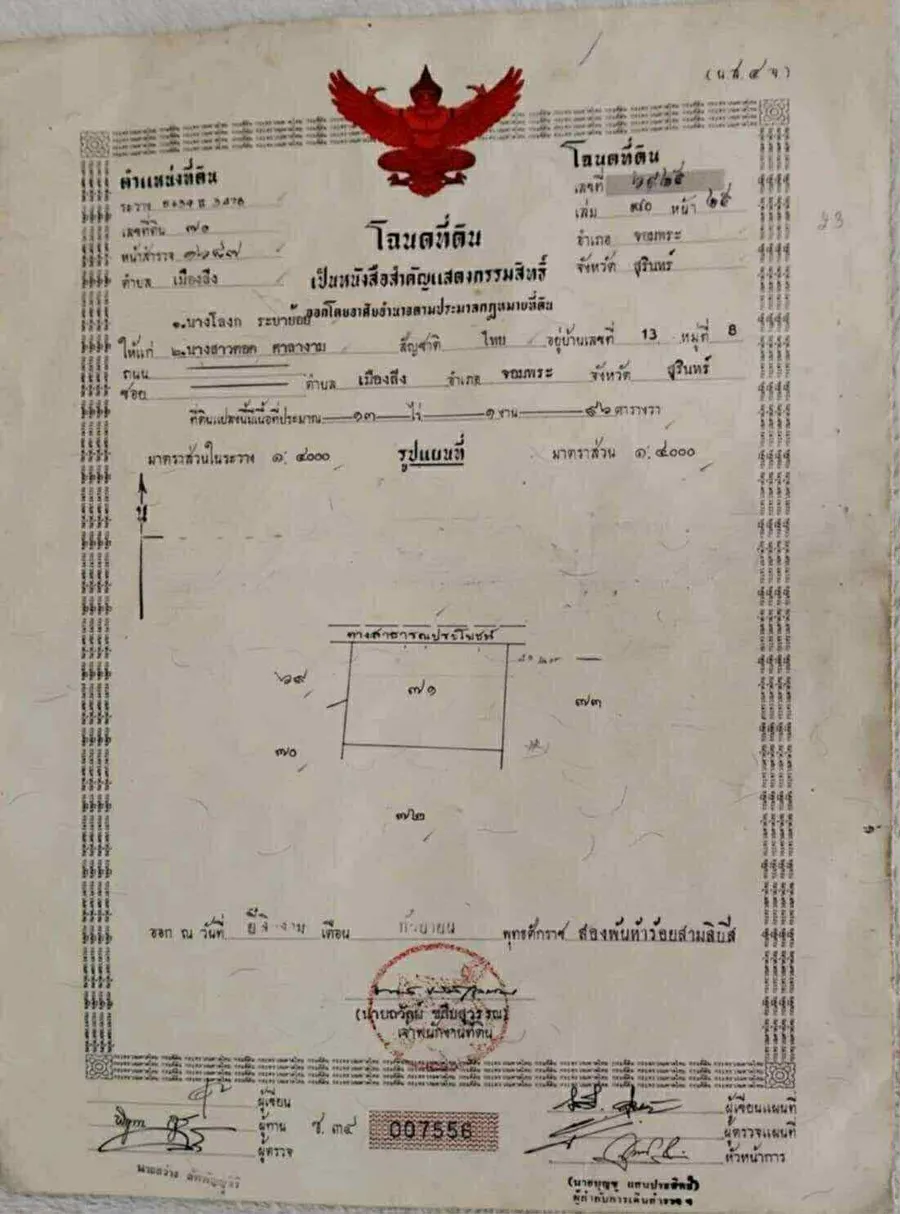 (น.ส. ๔ จ)
ตำแหน่งที่ดิน
ระวาง
เลขที่ดิน ๗๑
หน้าสำรวจ
ตำบล เมืองลีง
โฉนดที่ดิน
เลขที่ ๖๙๒๕
เล่ม ๗๐ หน้า ๒๕
อำเภอ จอมพระ
จังหวัด สุรินทร์
23
โฉนดที่ดิน
เป็นหนังสือสำคัญแสดงกรรมสิทธิ์
ออกโดยอาศัยอำนาจตามประมวลกฎหมายที่ดิน
๑.นางโลงก ระบายย้อย
ให้แก่ ๒.นางสาวคอด ศาลางาม สัญชาติ ไทย อยู่บ้านเลขที่ 13 หมู่ที่ 8
ถนน
ซอย ตำบล เมืองลีง อำเภอ จอมพระ จังหวัด สุรินทร์
ที่ดินแปลงนี้มีเนื้อที่ประมาณ ๑๓ ไร่ ๑ งาน ๙๖ ตารางวา
มาตราส่วนในระวาง ๑:๔๐๐๐ รูปแผนที่ มาตราส่วน ๑:๔๐๐๐
น
ทางสาธารณประโยชน์
๖๙ ๗๑ ๗๓
๗๐
๗๒
ออก ณ วันที่ เดือน กันยายน พุทธศักราช สองพันห้าร้อยสามสิบสี่
เจ้าพนักงานที่ดิน
ผู้เขียน
ผู้ทาน
ผู้ตรวจ
ช. ๓๔ 007556
ผู้เขียนแผนที่
ผู้ตรวจแผนที่
หัวหน้าการ